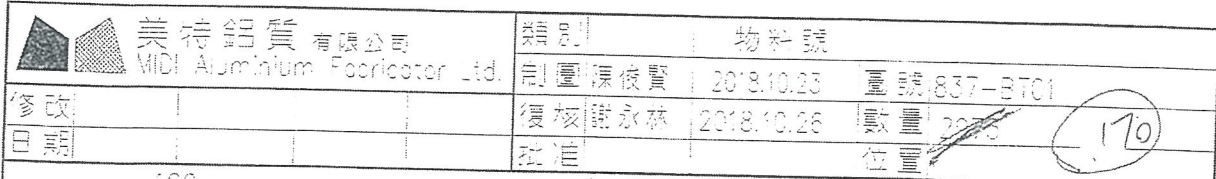 美特鋁質 有限公司
MIDI Aluminium Fabricator Ltd.
類別 物料號
制圖 陳俊賢 2018.10.23 圖號 837-BT01
修改 復核 謝永林 2018.10.26 數量 170
日期 批准 位置